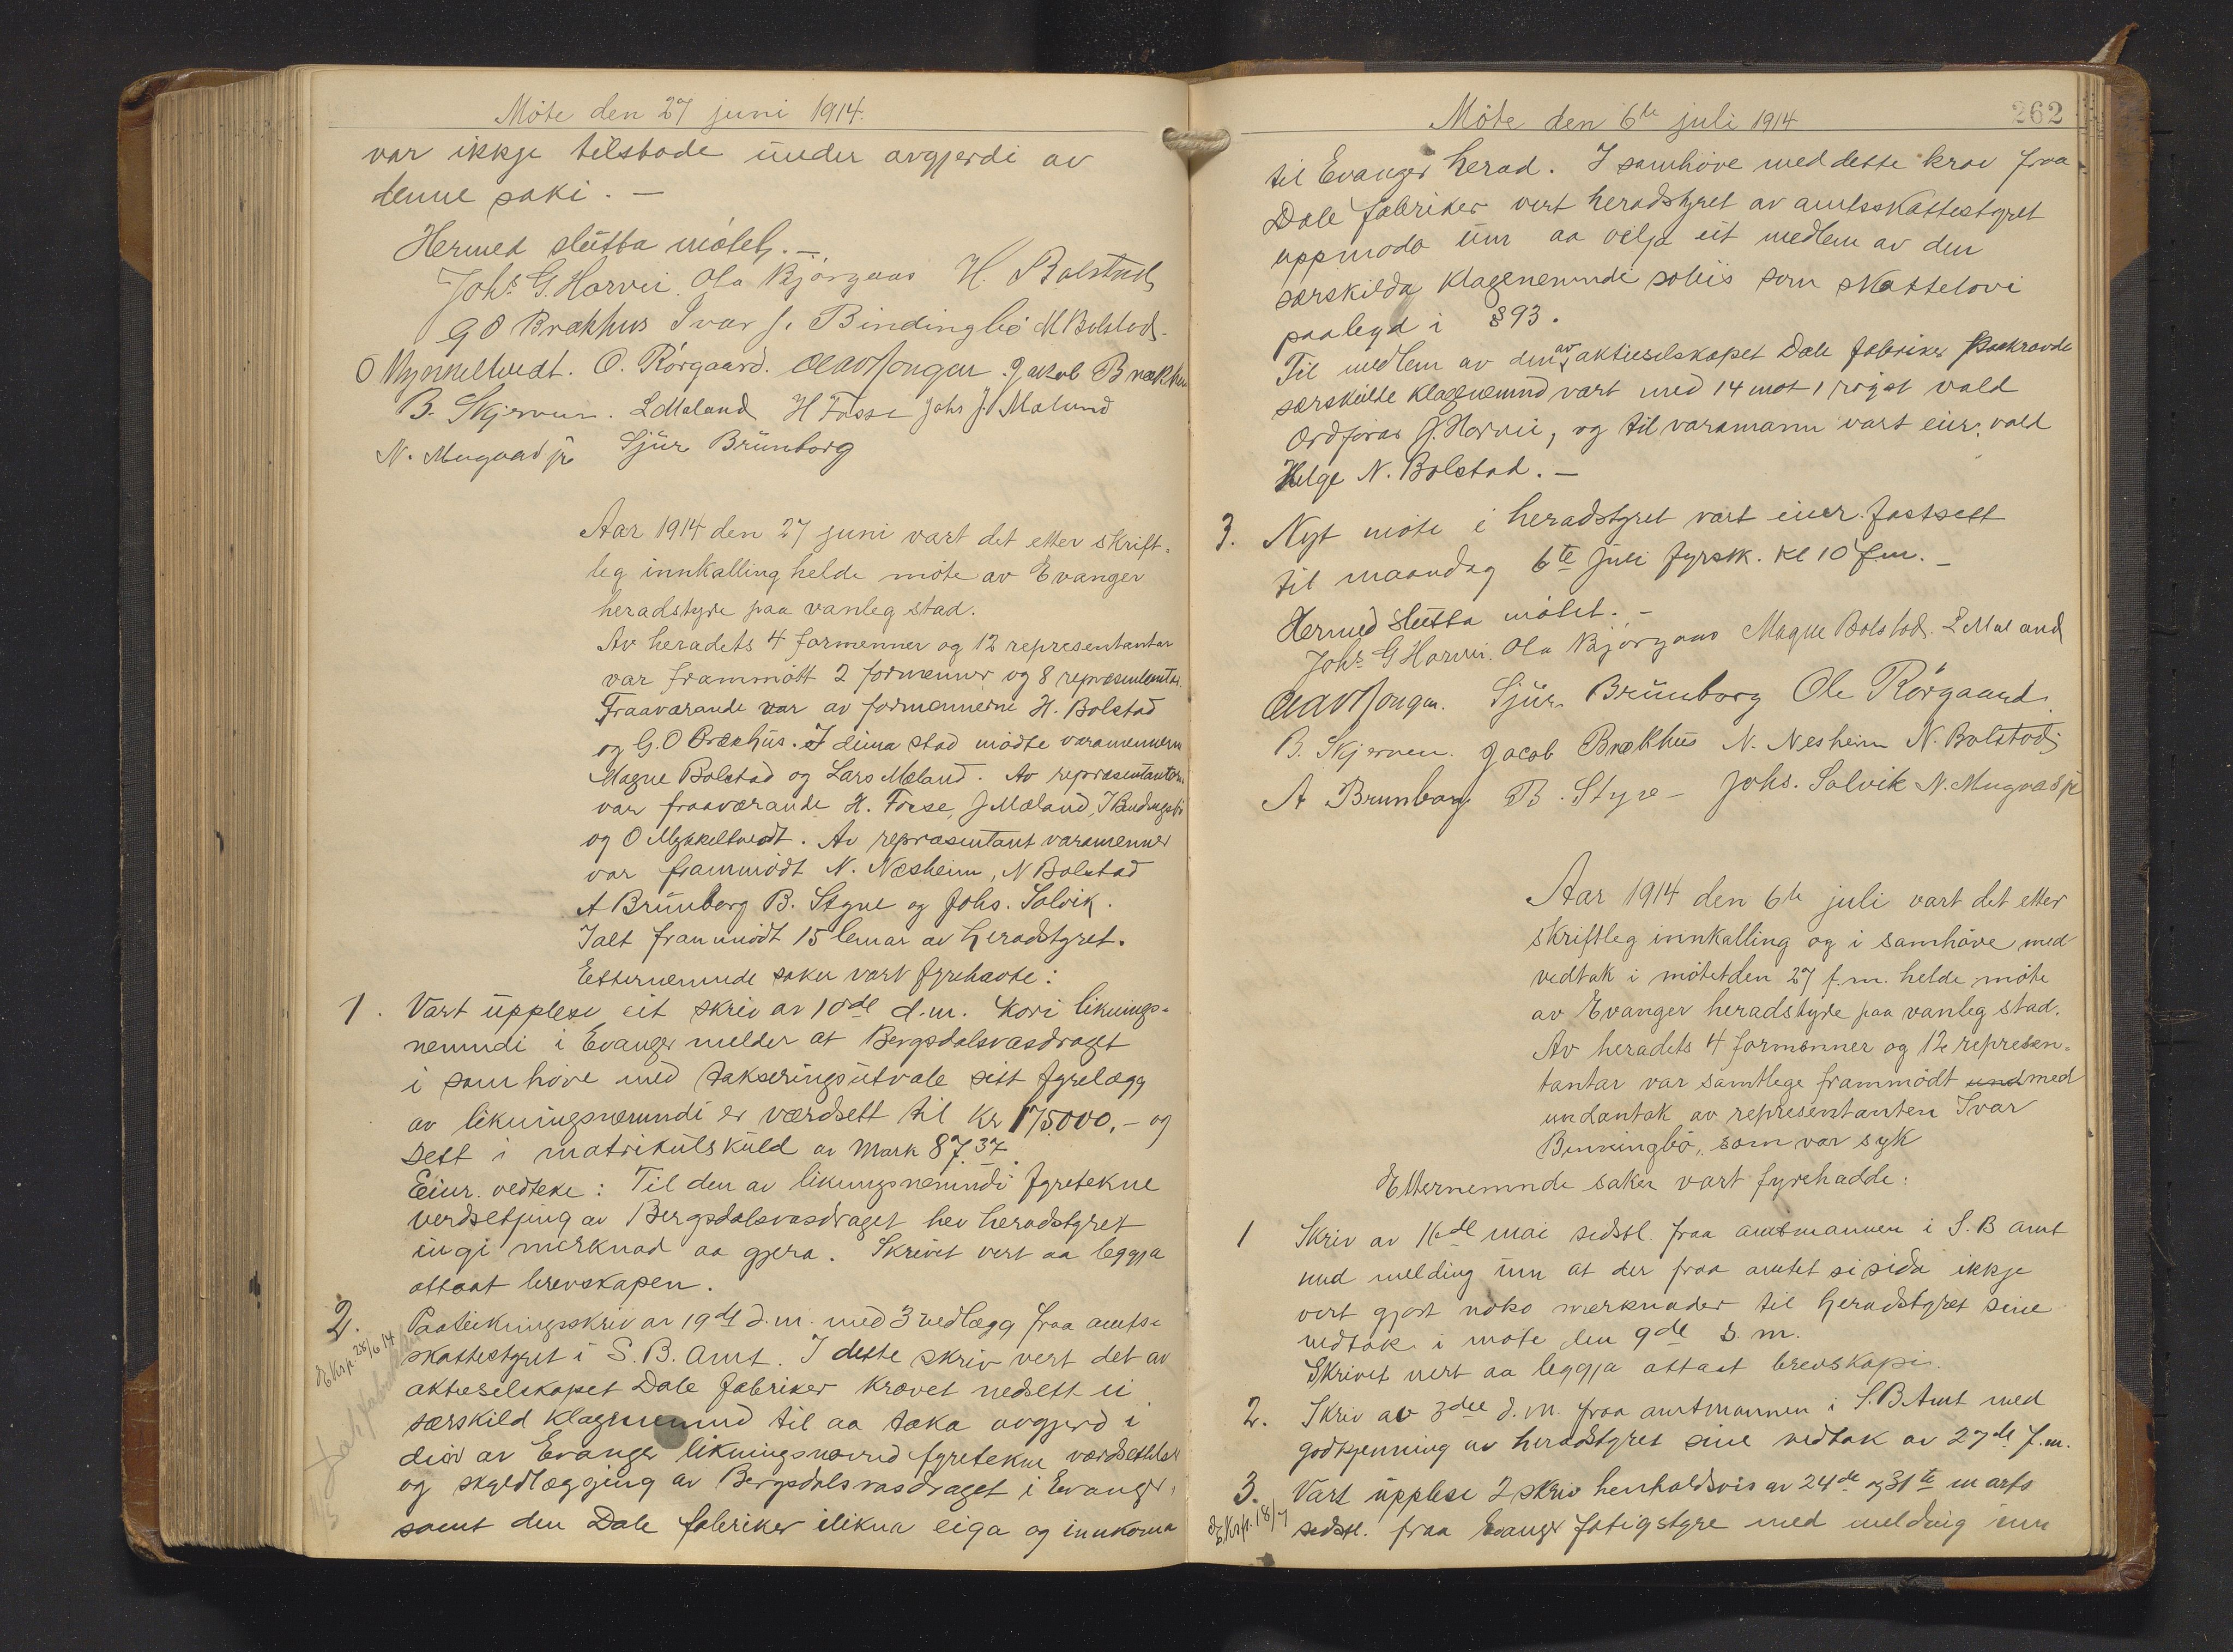 Möte den 27 juni 1914.
var ikkje tilstade under avgjerdi av
denne saki. —
Hermed slutta mötet. —
Johs. G. Horvei. Ola Bjørgaas H. Bolstad
G O Brækhus Ivar J. Bindingbö M Bolstad.
O Mykkeltvedt. O. Rörgaard. Olav Songen. Jakob Brækhus
B. Skjerven. L Mæland H Fosse Johs J. Mæland
N. Mugaas jr Sjur Brunborg
Aar 1914 den 27 juni vart det etter skrift-
leg innkalling helde möte av Evanger
heradstyre paa vanleg stad.
Av heradets 4 formenner og 12 representantar
var frammött 2 formenner og 8 representantar.
Fraaværande var av formennerne H. Bolstad
og G. O Brækhus. I deira stad mödte varamennern
Magne Bolstad og Lars Mæland. Av representantern
var fraaværande H. Fosse, J Mæland, I Bindingsbö
og O Mykkeltvedt. Av representant varamenner
var frammödt N. Nesheim, N Bolstad
A Brunborg B. Styve og Johs. Solvik.
Ialt frammödt 15 lemar av heradstyret.
Etternemnde saker vart fyrehavte:
1. Vart upplese eit skriv av 10de d.m. kori liknings-
nemndi i Evanger melder at Bergsdalsvasdraget
i samhöve med takseringsutvale sitt fyrelægg
av likningsnemndi er værdsett til kr 175000,- og
sett i matrikulskuld av Mark 87.37.
Einr. vedteke: Til den av likningsnemndi fyretekne
verdsetjing av Bergsdalsvasdraget hev heradstyret
ingi merknad aa gjera. Skrivet vert aa leggja
attaat brevskapen.
2. Paateikningsskriv av 19de d.m. med 3 vedlægg fraa amts-
Eksp. 28/6 14
skattestyret i S. B. Amt. I dette skriv vert det av
aktieselskapet Dale fabriker krævet nedsett ei
særskild klagenemnd til aa taka avgjerd i
den av Evanger likningsnemnd fyretekne værdsettelse
og skyldlegging av Bergsdalsvasdraget i Evanger,
samt den Dale fabriker ilikna eiga og innkoma
Möte den 6te juli 1914
262
til Evanger herad. I samhöve med dette krav fraa
Dale fabriker vert heradstyret av amtsskattestyret
uppmoda um aa velja eit medlem av den
særskilda klagenemndi soleis som skattelovi
paalegd i §93.
Til medlem av den av aktieselskapet Dale fabriker paakravde
særskilte klagenemnd vart med 14 mot 1 röyst vald
Ordförar J. Horvei, og til varamann vart einr. vald
Helge N. Bolstad. —
3. Nyt möte i heradstyret vart einr. fastsett
til maandag 6te juli fyrstk. kl 10 f.m. —
Hermed slutta mötet. —
Johs. G Horvei. Ola Bjørgaas Magne Bolstad. L Mæland
Olav Songen. Sjur Brunborg Ole Rörgaard.
B. Skjerven. Jacob Brækhus N. Nesheim N. Bolstad
A Brunborg B. Styve — Johs. Solvik N. Mugaas jr
Aar 1914 den 6te juli vart det etter
skriftleg innkalling og i samhöve med
vedtak i mötet den 27 f.m. helde möte
av Evanger heradstyre paa vanleg stad.
Av heradets 4 formenner og 12 represen-
tantar var samtlege frammödt und med
undantak av representanten Ivar
Binningbö, som var syk
Etternemnde saker vart fyrehadde:
1 Skriv av 16de mai sidstl. fraa amtmannen i S. B amt
med melding um at der fraa amtet si sida ikkje
vert gjort noko merknader til heradstyret sine
vedtak i möte den 9de s. m.
Skrivet vert aa leggja attaat brevskapi.
2. Skriv av 3dje d.m. fraa amtmannen i S. B Amt med
godkjenning av heradstyret sine vedtak av 27de f.m.
3. Vart upplese 2 skriv henholdsvis av 24de og 31te marts
Eksp. 18/7
sidstl. fraa Evanger fatigstyre med melding um